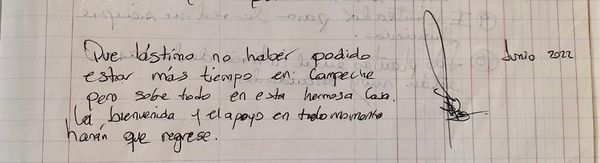 Que lástima no haber podido
estar más tiempo en Campeche
pero sobre todo en esta hermosa Casa.
La bienvenida y el apoyo en todo momento
harán que regrese.
Junio 2022